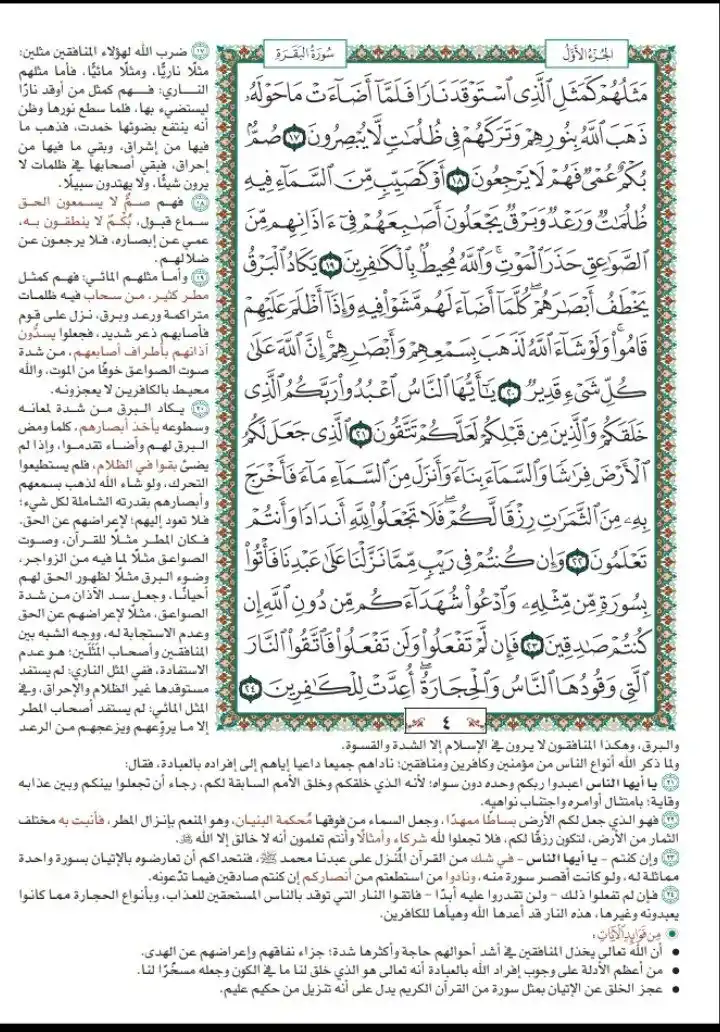 الجزء الأول
سورة البقرة
مَثَلُهُمْ كَمَثَلِ ٱلَّذِى ٱسْتَوْقَدَ نَارًا فَلَمَّآ أَضَآءَتْ مَا حَوْلَهُۥ
ذَهَبَ ٱللَّهُ بِنُورِهِمْ وَتَرَكَهُمْ فِى ظُلُمَٰتٍ لَّا يُبْصِرُونَ ١٧ صُمٌّۢ
بُكْمٌ عُمْىٌ فَهُمْ لَا يَرْجِعُونَ ١٨ أَوْ كَصَيِّبٍ مِّنَ ٱلسَّمَآءِ فِيهِ
ظُلُمَٰتٌ وَرَعْدٌ وَبَرْقٌ يَجْعَلُونَ أَصَٰبِعَهُمْ فِىٓ ءَاذَانِهِم مِّنَ
ٱلصَّوَٰعِقِ حَذَرَ ٱلْمَوْتِ ۚ وَٱللَّهُ مُحِيطٌۢ بِٱلْكَٰفِرِينَ ١٩ يَكَادُ ٱلْبَرْقُ
يَخْطَفُ أَبْصَٰرَهُمْ ۖ كُلَّمَآ أَضَآءَ لَهُم مَّشَوْا۟ فِيهِ وَإِذَآ أَظْلَمَ عَلَيْهِمْ
قَامُوا۟ ۚ وَلَوْ شَآءَ ٱللَّهُ لَذَهَبَ بِسَمْعِهِمْ وَأَبْصَٰرِهِمْ ۚ إِنَّ ٱللَّهَ عَلَىٰ
كُلِّ شَىْءٍ قَدِيرٌ ٢٠ يَٰٓأَيُّهَا ٱلنَّاسُ ٱعْبُدُوا۟ رَبَّكُمُ ٱلَّذِى
خَلَقَكُمْ وَٱلَّذِينَ مِن قَبْلِكُمْ لَعَلَّكُمْ تَتَّقُونَ ٢١ ٱلَّذِى جَعَلَ لَكُمُ
ٱلْأَرْضَ فِرَٰشًا وَٱلسَّمَآءَ بِنَآءً وَأَنزَلَ مِنَ ٱلسَّمَآءِ مَآءً فَأَخْرَجَ
بِهِۦ مِنَ ٱلثَّمَرَٰتِ رِزْقًا لَّكُمْ ۖ فَلَا تَجْعَلُوا۟ لِلَّهِ أَندَادًا وَأَنتُمْ
تَعْلَمُونَ ٢٢ وَإِن كُنتُمْ فِى رَيْبٍ مِّمَّا نَزَّلْنَا عَلَىٰ عَبْدِنَا فَأْتُوا۟
بِسُورَةٍ مِّن مِّثْلِهِۦ وَٱدْعُوا۟ شُهَدَآءَكُم مِّن دُونِ ٱللَّهِ إِن
كُنتُمْ صَٰدِقِينَ ٢٣ فَإِن لَّمْ تَفْعَلُوا۟ وَلَن تَفْعَلُوا۟ فَٱتَّقُوا۟ ٱلنَّارَ
ٱلَّتِى وَقُودُهَا ٱلنَّاسُ وَٱلْحِجَارَةُ ۖ أُعِدَّتْ لِلْكَٰفِرِينَ ٢٤
٤
١٧ ضرب الله لهؤلاء المنافقين مثلين:
مثلًا ناريًّا، ومثلًا مائيًّا، فأما مثلهم
النـاري: فهـم كمثل من أوقد نارًا
ليستضيء بها، فلما سطع نورها وظن
أنه ينتفع بضوئها خمدت، فذهب ما
فيها من إشراق، وبقي ما فيها من
إحراق، فبقي أصحابها في ظلمات لا
يرون شيئًا، ولا يهتدون سبيلًا.
١٨ فهـم صـمٌّ لا يسـمعون الحـق
سماع قبول، بُكْـمٌ لا ينطقـون به،
عمي عن إبصاره، فـلا يرجعون عن
ضلالهـم.
١٩ وأمـا مثلهـم المائـي: فهـم كمثـل
مطـر كثيـر، مـن سـحاب فيه ظلمات
متراكمـة ورعـد وبـرق، نـزل على قـوم
فأصابهم ذعر شديد، فجعلوا يسدُّون
آذانهـم بأطراف أصابعهم، من شدة
صوت الصواعق خوفًا من الموت، والله
محيـط بالكافرين لا يعجزونـه.
٢٠ يـكاد البـرق مـن شـدة لمعانـه
وسطوعه يأخذ أبصارهم، كلما ومض
البـرق لهـم وأضـاء تقدمـوا، وإذا لم
يضئ بقوا في الظلام، فلم يستطيعوا
التحرك، ولو شاء الله لذهب بسمعهم
وأبصارهم بقدرته الشاملة لكل شيء؛
فـلا تعود إليهم؛ لإعراضهم عن الحق.
فـكان المطـر مثـلًا للقـرآن، وصـوت
الصواعق مثـلًا لما فيه مـن الزواجر،
وضوء البرق مثـلًا لظهور الحق لهم
أحيانًـا، وجعـل سـد الآذان مـن شـدة
الصواعق، مثلًا لإعراضهم عن الحق
وعدم الاستجابة له، ووجه الشبه بين
المنافقين وأصحاب المَثَلَين: هو عـدم
الاستفادة، ففي المثل الناري: لم يستفد
مستوقدها غير الظلام والإحراق، وفي
المثل المائي: لم يستفد أصحاب المطر
إلا مـا يروّعهـم ويزعجهـم مـن الرعـد
والبـرق، وهكـذا المنافقـون لا يـرون في الإسـلام إلا الشـدة والقسـوة.
ولما ذكر الله أنواع الناس من مؤمنين وكافرين ومنافقين؛ ناداهم جميعا داعيا إياهم إلى إفراده بالعبادة، فقال:
٢١ يا أيها الناس اعبدوا ربكم وحده دون سواه؛ لأنه الذي خلقكم وخلق الأمم السابقة لكم، رجاء أن تجعلوا بينكم وبين عذابه
وقاية؛ بامتثال أوامـره واجتنـاب نواهيه.
٢٢ فهـو الـذي جعـل لكم الأرض بساطًا ممهدًا، وجعل السماء من فوقها مُحكمة البنيان، وهو المنعم بإنزال المطر، فأنبت به مختلف
الثمار من الأرض، لتكون رزقًا لكم، فلا تجعلوا لله شركاء وأمثالًا وأنتم تعلمون أنه لا خالق إلا الله ﷻ.
٢٣ وإن كنتم - يا أيها الناس - في شك من القرآن المُنزل على عبدنا محمد ﷺ، فنتحداكم أن تعارضوه بالإتيان بسورة واحدة
مماثلة له، ولو كانت أقصر سورة منه، ونادوا من استطعتم من أنصاركم إن كنتم صادقين فيما تدّعونه.
٢٤ فـإن لم تفعلوا ذلك - ولن تقدروا عليه أبدًا - فاتقوا النار التي توقد بالناس المستحقين للعذاب، وبأنواع الحجارة مما كانوا
يعبدونه وغيرها، هذه النار قد أعدها الله وهيأها للكافرين.
مِن فَوَائِدِ الآيَاتِ:
• أن الله تعالى يخذل المنافقين في أشد أحوالهم حاجة وأكثرها شدة؛ جزاء نفاقهم وإعراضهم عن الهدى.
• من أعظم الأدلة على وجوب إفراد الله بالعبادة أنه تعالى هو الذي خلق لنا ما في الكون وجعله مسخّرًا لنا.
• عجز الخلق عن الإتيان بمثل سورة من القرآن الكريم يدل على أنه تنزيل من حكيم عليم.